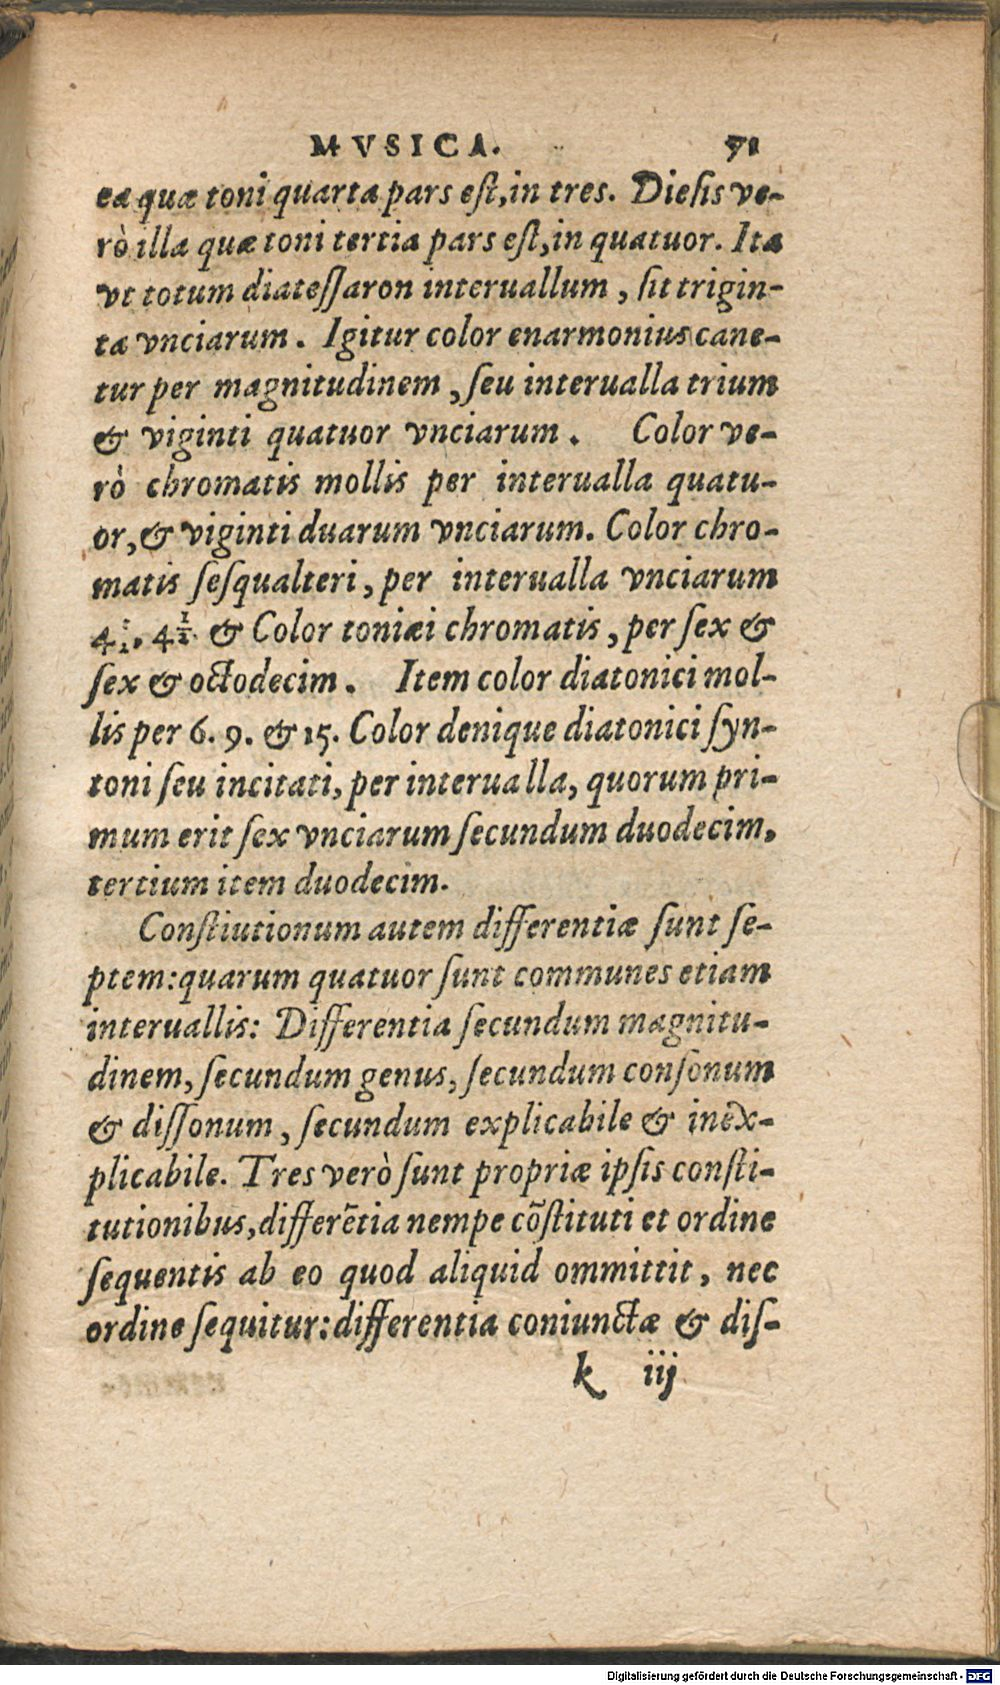 MVSICA. 71
ea quæ toni quarta pars est, in tres. Diesis ve-
rò illa quæ toni tertia pars est, in quatuor. Ita
vt totum diatessaron interuallum, sit trigin-
ta vnciarum. Igitur color enarmonius cane-
tur per magnitudinem, seu interualla trium
& viginti quatuor vnciarum. Color ve-
rò chromatis mollis per interualla quatu-
or, & viginti duarum vnciarum. Color chro-
matis sesqualteri, per interualla vnciarum
4 1/2, 4 1/2 & Color toniæi chromatis, per sex &
sex & octodecim. Item color diatonici mol-
lis per 6. 9. & 15. Color denique diatonici syn-
toni seu incitati, per interualla, quorum pri-
mum erit sex vnciarum secundum duodecim,
tertium item duodecim.
Constiutionum autem differentiæ sunt se-
ptem: quarum quatuor sunt communes etiam
interuallis: Differentia secundum magnitu-
dinem, secundum genus, secundum consonum
& dissonum, secundum explicabile & inex-
plicabile. Tres verò sunt propriæ ipsis consti-
tutionibus, differētia nempe cōstituti et ordine
sequentis ab eo quod aliquid ommittit, nec
ordine sequitur: differentia coniunctæ & dis-
k iij
Digitalisierung gefördert durch die Deutsche Forschungsgemeinschaft - DFG